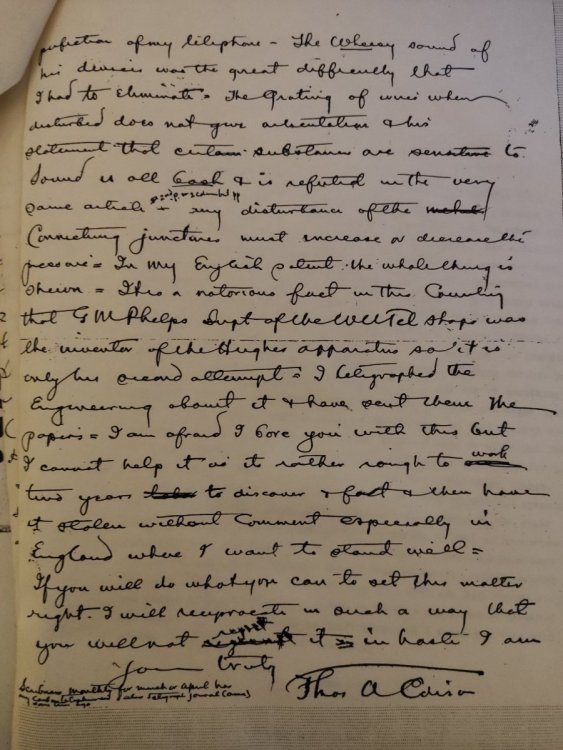 perfection of my telephone – The Wheesy sound of
his devices was the great difficulty that
I had to Eliminate = The Grating of wires when
disturbed does not give articulation & his
statement that certain substances are sensitive to
Sound is all Bosh & is refuted in the very
same article – any disturbance of the
Connecting junctures must increase or decrease the
pressure = In my English patent the whole thing is
shewn = It is a notorious fact in this Country
that G M Phelps Supt of the WU Tel Shops was
the inventor of the Hughes apparatus so it is
only his second attempt = I telegraphed the
Engineering about it & have sent them the
papers = I am afraid I bore you with this but
I cannot help it as it rather rough to work
two years to discover a fact & then have
it stolen without Comment especially in
England where I want to stand well =
If you will do what you can to set this matter
right. I will reciprocate in such a way that
you will not regret it in haste I am
Your truly
Thos A Edison
Scribners monthly for march or April has
my also telegraph journal